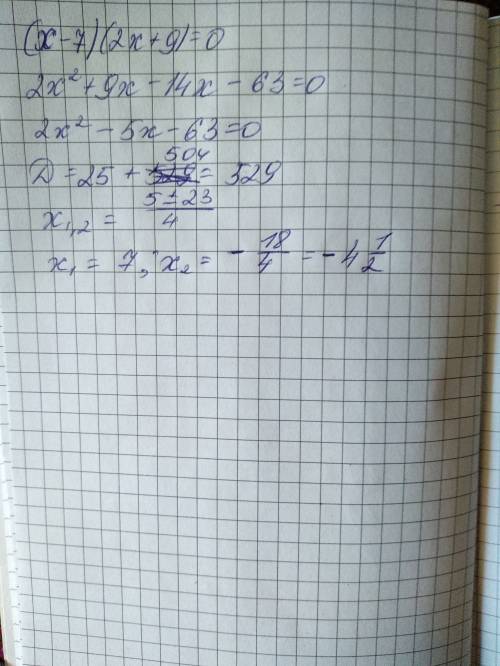 (x-7)(2x+9)=0
2x²+9x-14x-63=0
2x²-5x-63=0
D=25+504=529
x₁,₂ = (5±23)/4
x₁ = 7, x₂ = -18/4 = -4 1/2